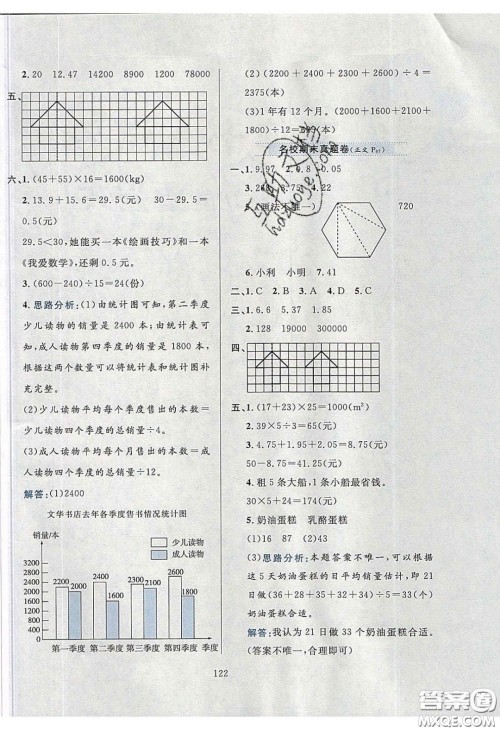 2. 20 12.47 1000 200 1200 78000
五、
六、1. (45+55)×16=1600(kg)
2. 13.9+15.6=29.5(元) 30-29.5=0.5(元)
29.5<30,她能买一本《绘画技巧》和一本《我爱数学》,还剩 0.5 元。
3. (600-240)÷15=24(份)
4. 思路分析:(1)由统计图可知,第二季度
少儿读物的销量是 2400 本;由统计表可
知,成人读物第四季度的销量是 1800 本,
根据这两个数量可以将统计表和统计图
补充完整。
(2)少儿读物平均每个季度售出的本数=
少儿读物四个季度的总销量÷4。
(3)成人读物平均每个月售出的本数=
成人读物四个季度的总销量÷12。
解答:(1)2400
文华书店去年各季度售书情况统计图
销量/本
少儿读物
成人读物
3200
2800
2400
2000
1600
1200
800
400
0
2200 2000 2400 1600 2300 2100 2600 1800
第一季度 第二季度 第三季度 第四季度 季度
(2)(2200+2400+2300+2600)÷4=
2375(本)
(3)1 年有 12 个月。(2000+1600+2100+
1800)÷12=(本)
名校期末真题卷(正文 P)
一、1. 9.97 0.8 0.05
2. 6.75 4.22
720
6. 小利 小明 7. 41
二、1. C 2. B 3. A 4. D 5. A
三、1. 6.6 5.37 1.85
2. 128 19000 300000
四、
五、1. (17+23)×25=1000(m²)
2. 39×5÷3=65(元)
3. 4.75+1.25+2.75=8.75(元)
50-8.75=41.25(元)
4. 租 5 条大船,1 条小船最省钱。
30×5+24=174(元)
5. 奶油蛋糕 乳酪蛋糕
(1)16 87 (2)43
(3)思路分析:本题答案不唯一,可以根据
这 5 天奶油蛋糕的日平均销量估计,即 21
日做(36+28+35+32+34)÷5=33(个)
奶油蛋糕合适。
解答:我认为 21 日做 33 个奶油蛋糕合适。
(答案不唯一,合理即可)
122
答案圈
MXQE.COM